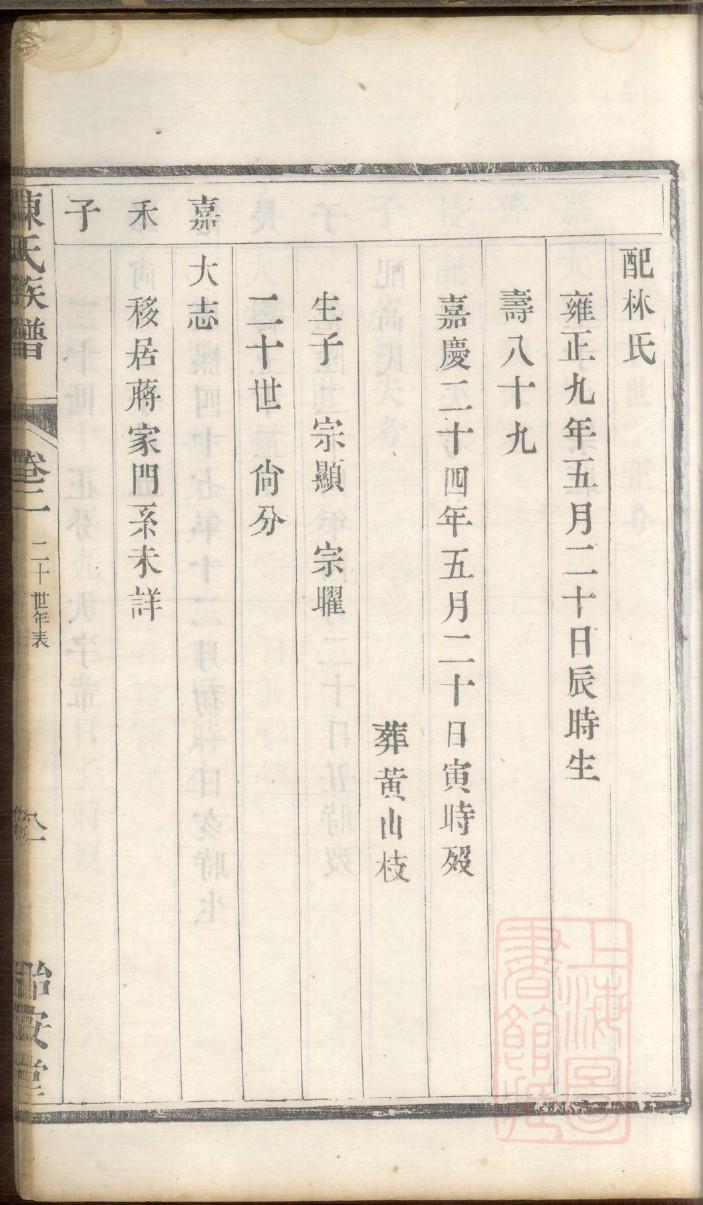 配林氏
雍正九年五月二十日辰時生
壽八十九
嘉慶二十四年五月二十日寅時歿
葬黃山枝
生子 宗顯 宗曜
二十世 尙分
嘉 大志
禾 移居蔣家門系未詳
子
陳氏族譜 卷二 二十世年表
怡安堂
上海圖書館藏